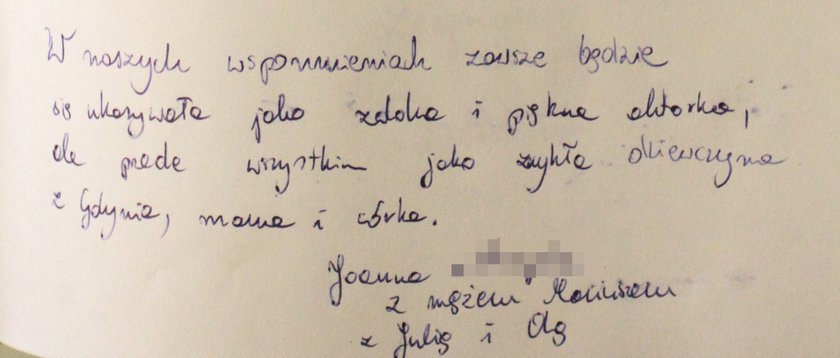 W naszych wspomnieniach zawsze będzie
się ukazywała jako zdolna i piękna aktorka,
ale przede wszystkim jako zwykła dziewczyna
z Gdynia, mama i córka.
Joanna
z mężem Mariuszem
z Julią i Olą